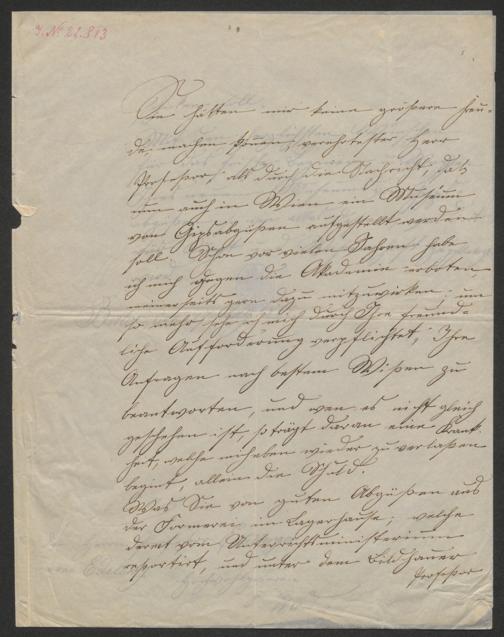 J. Nº 22.813
Sie hätten mir keine größere Freu-
de machen können, verehrtester Herr
Professor, als durch die Nachricht, daß
nun auch in Wien ein Museum
von Gipsabgüßen aufgestellt werden
soll. Schon vor vielen Jahren habe
ich mich gegen die Akademie erboten
meinerseits gern dazu mitzuwirken, um
so mehr sehe ich mich durch Ihre freund-
liche Aufforderung verpflichtet, Ihre
Anfragen nach bestem Wißen zu
beantworten, und wen es nicht gleich
geschehen ist, so trägt daran eine Krank-
heit, welche mich eben wieder zu verlaßen
begint, allein die Schuld.
Was Sie von guten Abgüßen aus
der Formerei im Lagerhause, welche
derzeit vom Unterrichtsministerium
ressortirt, und unter dem Bildhauer
Professor